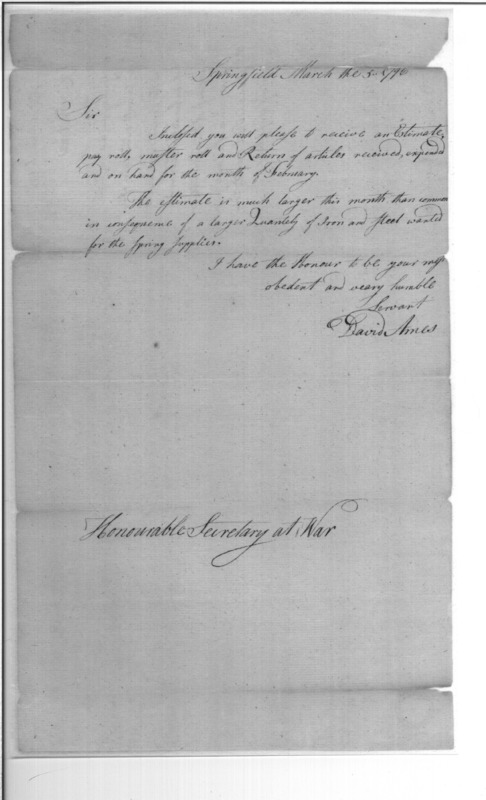 Springfield March the 3d 179
Sir
Inclosed you will please to receive an Estimate,
pay roll, muster roll and Return of articles received, expended
and on hand for the month of February.
The Estimate is much larger this month than common
in consequence of a larger Quantety of Iron and Steel wanted
for the Spring Supplies.
I have the Honour to be your
obedent and veary humble
Servant
David Ames
Honourable Secretary at War